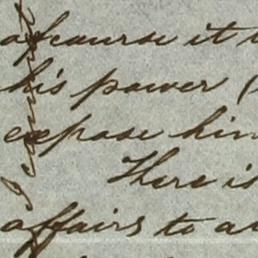 of course it
his power (
expose him
There is
affairs to